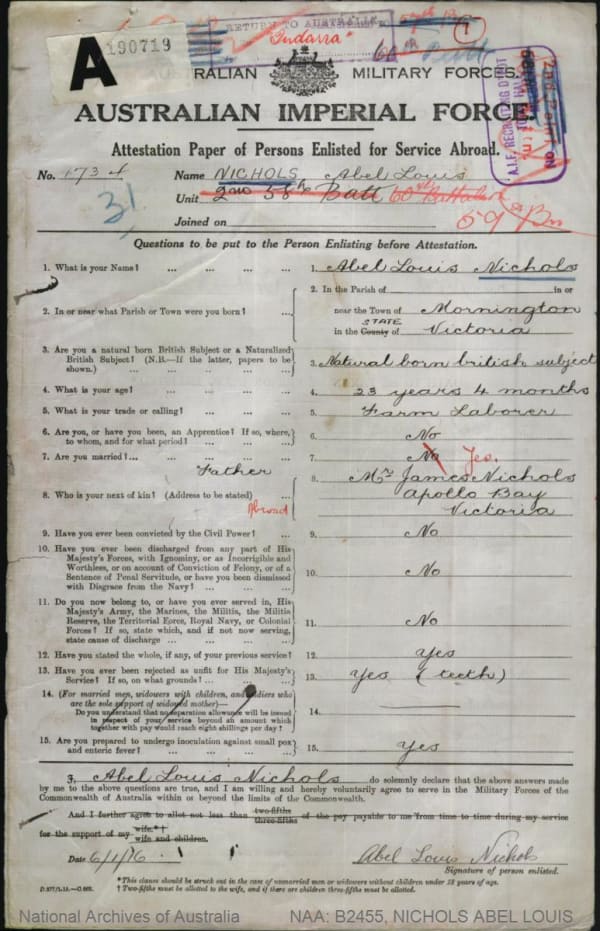 190719
A
RETURN TO AUSTRALIA
"Indarra"
AUSTRALIAN MILITARY FORCES.
AUSTRALIAN IMPERIAL FORCE.
A.I.F. RECRUITING DEPOT
TOWN HALL
Attestation Paper of Persons Enlisted for Service Abroad.
No. 1734 Name NICHOLS Abel Louis
Unit 2nd 58th Batt 60th Battalion
31
59th Bn
Joined on
Questions to be put to the Person Enlisting before Attestation.
1. What is your Name? ... ... ... ... 1. Abel Louis Nichols
2. In or near what Parish or Town were you born? ... 2. In the Parish of in or
near the Town of Mornington
STATE
in the County of Victoria
3. Are you a natural born British Subject or a Naturalized
British Subject? (N.B.—If the latter, papers to be
shown.) ... ... ... ... 3. Natural born british subject
4. What is your age? ... ... ... ... 4. 23 years 4 months
5. What is your trade or calling? ... ... ... 5. Farm Laborer
6. Are you, or have you been, an Apprentice? If so, where,
to whom, and for what period? ... ... ... 6. No
7. Are you married?... ... ... ... 7. No Yes.
Father
8. Who is your next of kin? (Address to be stated) ... 8. Mr James Nichols
Apollo Bay
Victoria
Abroad
9. Have you ever been convicted by the Civil Power? ... 9. No
10. Have you ever been discharged from any part of His
Majesty's Forces, with Ignominy, or as Incorrigible and
Worthless, or on account of Conviction of Felony, or of a
Sentence of Penal Servitude, or have you been dismissed
with Disgrace from the Navy? ... ... ... 10. No
11. Do you now belong to, or have you ever served in, His
Majesty's Army, the Marines, the Militia, the Militia
Reserve, the Territorial Force, Royal Navy, or Colonial
Forces? If so, state which, and if not now serving,
state cause of discharge ... ... ... 11. No
12. Have you stated the whole, if any, of your previous service? 12. Yes
13. Have you ever been rejected as unfit for His Majesty's
Service? If so, on what grounds? ... ... ... 13. Yes (teeth)
14. (For married men, widowers with children, and soldiers who
are the sole support of widowed mother)—
Do you understand that no separation allowance will be issued
in respect of your service beyond an amount which
together with pay would reach eight shillings per day? 14.
15. Are you prepared to undergo inoculation against small pox
and enteric fever? ... ... ... ... 15. Yes
I, Abel Louis Nichols do solemnly declare that the above answers made
by me to the above questions are true, and I am willing and hereby voluntarily agree to serve in the Military Forces of the
Commonwealth of Australia within or beyond the limits of the Commonwealth.
And I further agree to allot not less than two-fifths three-fifths of the pay payable to me from time to time during my service
for the support of my wife.*† wife and children.
Date 6/1/16 Abel Louis Nichols
Signature of person enlisted.
*This clause should be struck out in the case of unmarried men or widowers without children under 18 years of age.
† Two-fifths must be allotted to the wife, and if there are children three-fifths must be allotted.
National Archives of Australia NAA: B2455, NICHOLS ABEL LOUIS